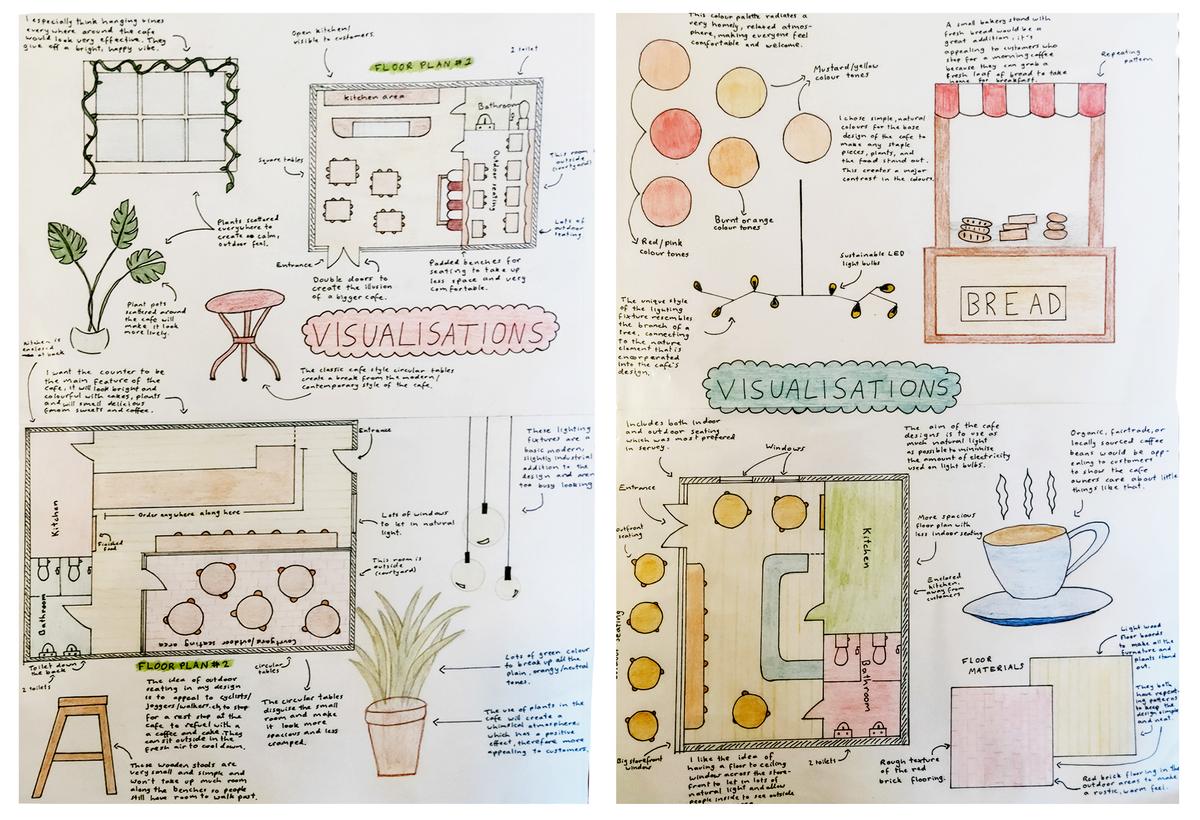 I especially think hanging vines
everywhere around the cafe
would look very effective. They
give off a bright, happy vibe.
Open kitchen/
visible to customers.
FLOOR PLAN #2
2 toilet
kitchen area
Bathroom
Square tables
Outdoor seating
This room
outside
(courtyard)
Lots of
outdoor
seating.
Plants scattered
everywhere to
create a calm,
outdoor feel.
Entrance
Double doors to
create the illusion
of a bigger cafe.
Padded benches for
seating to take up
less space and very
comfortable.
Plant pots
scattered around
the cafe will
make it look
more lively.
VISUALISATIONS
The classic cafe style circular tables
create a break from the modern/
contemporary style of the cafe.
Kitchen is
enclosed
at back
I want the counter to be
the main feature of the
cafe, it will look bright and
colourful with cakes, plants
and will smell delicious
from sweets and coffee.
Entrance
Kitchen
Order anywhere along here
Finished
food
Lots of windows
to let in natural
light.
This room is
outside
(courtyard)
Bathroom
courtyard/outdoor seating area
Toilet down
the back
2 toilets
FLOOR PLAN #2
circular
tables
These lighting
fixtures are a
basic modern,
slightly industrial
addition to the
design and aren
too busy looking
The idea of outdoor
seating in my design
is to appeal to cyclists/
joggers/walkers.ch to stop
for a rest stop at the
cafe to refuel with a
coffee and cake. They
can sit outside in the
fresh air to cool down.
The circular tables
disguise the small
room and make
it look more
spacious and less
cramped.
Lots of green colour
to break up all the
plain, orangy/neutral
tones.
The use of plants in the
cafe will create a
whimsical atmosphere,
which has a positive
effect, therefore more
appealing to customers.
These wooden stools are
very small and simple and
won't take up much room
along the benches so people
still have room to walk past.
This colour palette radiates a
very homely, relaxed atmos-
phere, making everyone feel
comfortable and welcome.
Mustard/yellow
colour tones
I chose simple, natural
colours for the base
design of the cafe to
make any staple
pieces, plants, and
the food stand out.
This creates a major
contrast in the colours.
Burnt orange
colour tones
Red/pink
colour tones
A small bakery stand with
fresh bread would be a
great addition, it's
appealing to customers who
stop for a morning coffee
because they can grab a
fresh loaf of bread to take
home for breakfast.
Repeating
pattern
BREAD
Sustainable LED
light bulbs
The unique style
of the lighting
fixture resembles
the branch of a
tree, connecting
to the nature
element that is
encorperated
into the cafe's
design.
VISUALISATIONS
Includes both indoor
and outdoor seating
which was most prefered
in survey.
Windows
Entrance
seating
Kitchen
Bathroom
seating
Big storefront
window
2 toilets
I like the idea of
having a floor to ceiling
window across the store-
front to let in lots of
natural light and allow
people inside to see outside
The aim of the cafe
designs is to use as
much natural light
as possible to minimise
the amount of electricity
used on light bulbs.
Organic, fairtrade, or
locally sourced coffee
beans would be app-
ealing to customers
to show the cafe
owners care about little
things like that.
More spacious
floor plan with
less indoor seating
Enclosed
kitchen,
away from
customers
FLOOR
MATERIALS
Light wood
floor boards
to make all the
furnature and
plants stand
out.
They both
have repeat-
ing patterns
to keep the
design simple
and neat.
Rough texture
of the red
brick flooring.
Red brick flooring in the
outdoor areas to make
a rustic, warm feel.